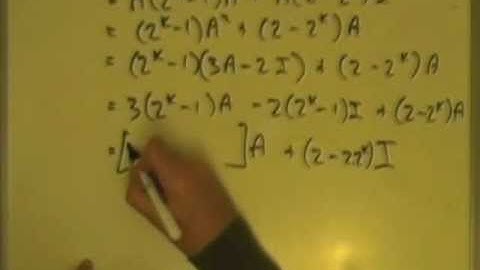 = (2^k - 1)A² + (2 - 2^k)A
= (2^k - 1)(3A - 2I) + (2 - 2^k)A
= 3(2^k - 1)A - 2(2^k - 1)I + (2 - 2^k)A
= [ ]A + (2 - 2 2^k)I